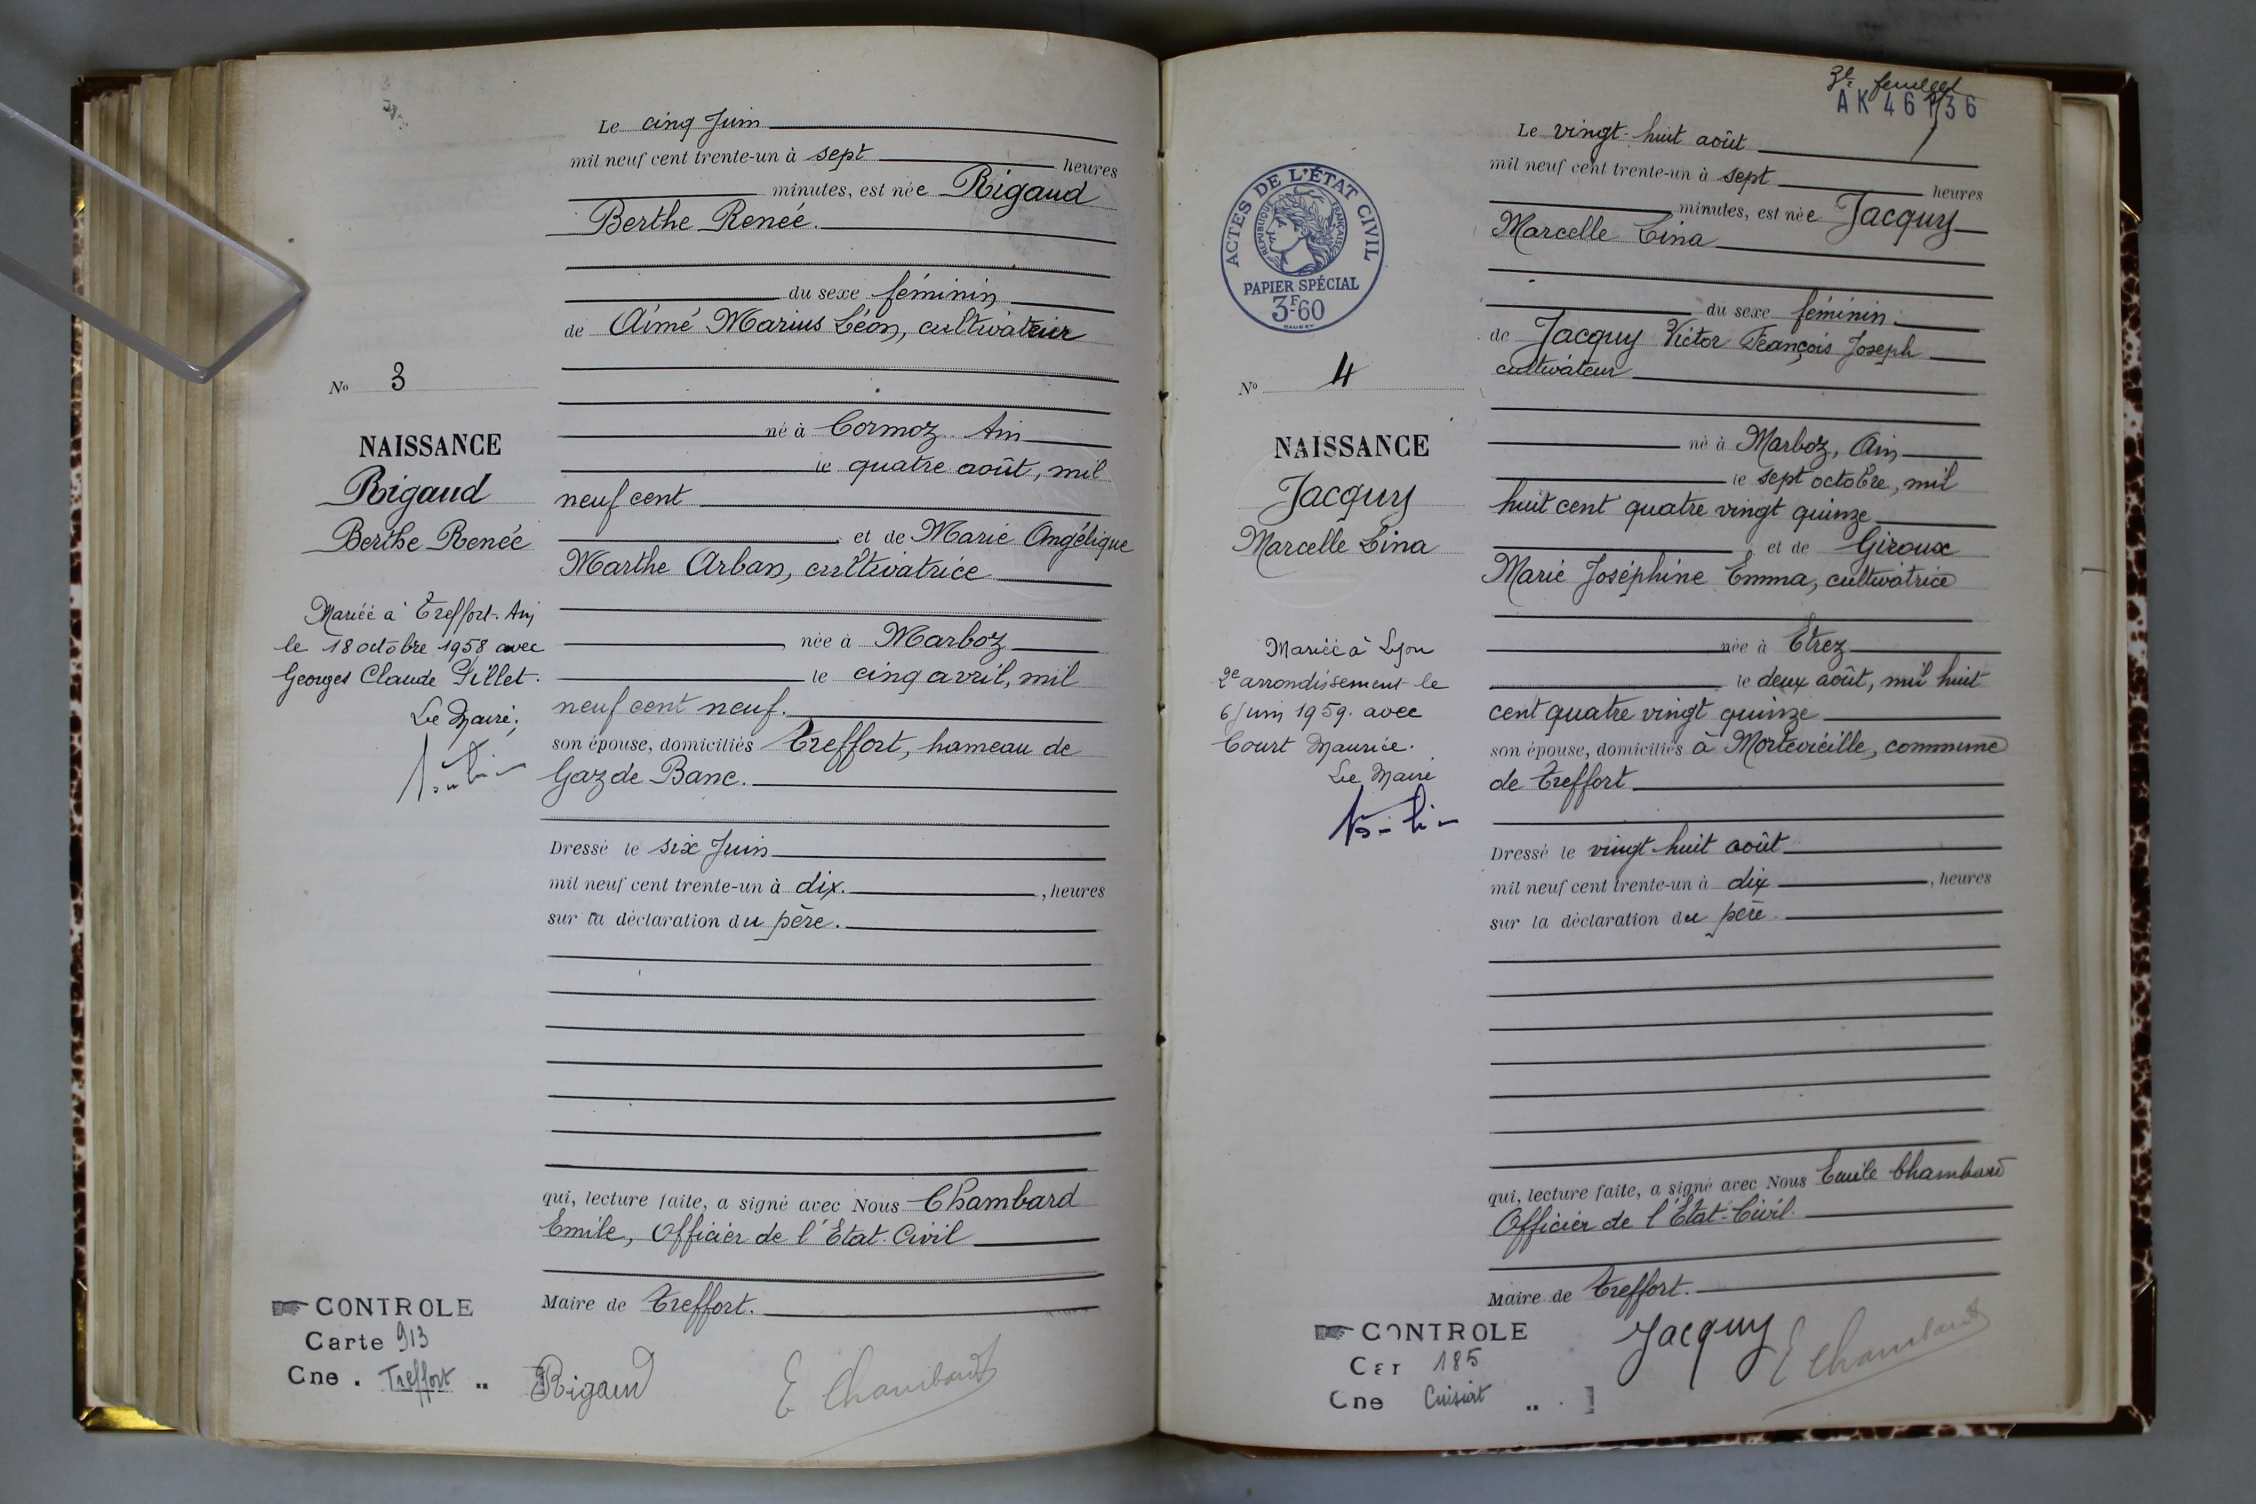 Le cinq Juin
mil neuf cent trente-un à sept heures
minutes, est née Rigaud
Berthe Renée.
du sexe féminin
de Aimé Marius Léon, cultivateur
né à Cormoz Ain
le quatre août, mil
neuf cent
et de Marie Angélique
Marthe Arban, cultivatrice
née à Marboz
le cinq avril, mil
neuf cent neuf.
son épouse, domiciliés Treffort, hameau de
Gaz de Banc.
Dressé le six Juin
mil neuf cent trente-un à dix. , heures
sur la déclaration du père.
qui, lecture faite, a signé avec Nous Chambard
Emile, Officier de l'Etat-Civil
Maire de Treffort.
Rigaud E Chambard
No 3
NAISSANCE
Rigaud
Berthe Renée
Mariée à Treffort-Ain
le 18 octobre 1958 avec
Georges Claude Pillet.
Le Maire,
CONTROLE
Carte 913
Cne . Treffort "
3e feuillet
Le vingt-huit août
mil neuf cent trente-un à sept heures
minutes, est née Jacquy
Marcelle Lina
du sexe féminin
de Jacquy Victor François Joseph
cultivateur
né à Marboz, Ain
le sept octobre, mil
huit cent quatre vingt quinze
et de Giroux
Marie Joséphine Emma, cultivatrice
née à Etrez
le deux août, mil huit
cent quatre vingt quinze
son épouse, domiciliés à Mortevieille, commune
de Treffort
Dressé le vingt-huit août
mil neuf cent trente-un à dix , heures
sur la déclaration du père
qui, lecture faite, a signé avec Nous Emile Chambard
Officier de l'Etat-Civil.
Maire de Treffort.
Jacquy E Chambard
ACTES DE L'ÉTAT CIVIL
RÉPUBLIQUE FRANÇAISE
PAPIER SPÉCIAL
3F-60
No 4
NAISSANCE
Jacquy
Marcelle Lina
Mariée à Lyon
2e arrondissement le
6 Juin 1959. avec
Court Maurice.
Le Maire
CONTROLE
Car 185
Cne Cuisiat "